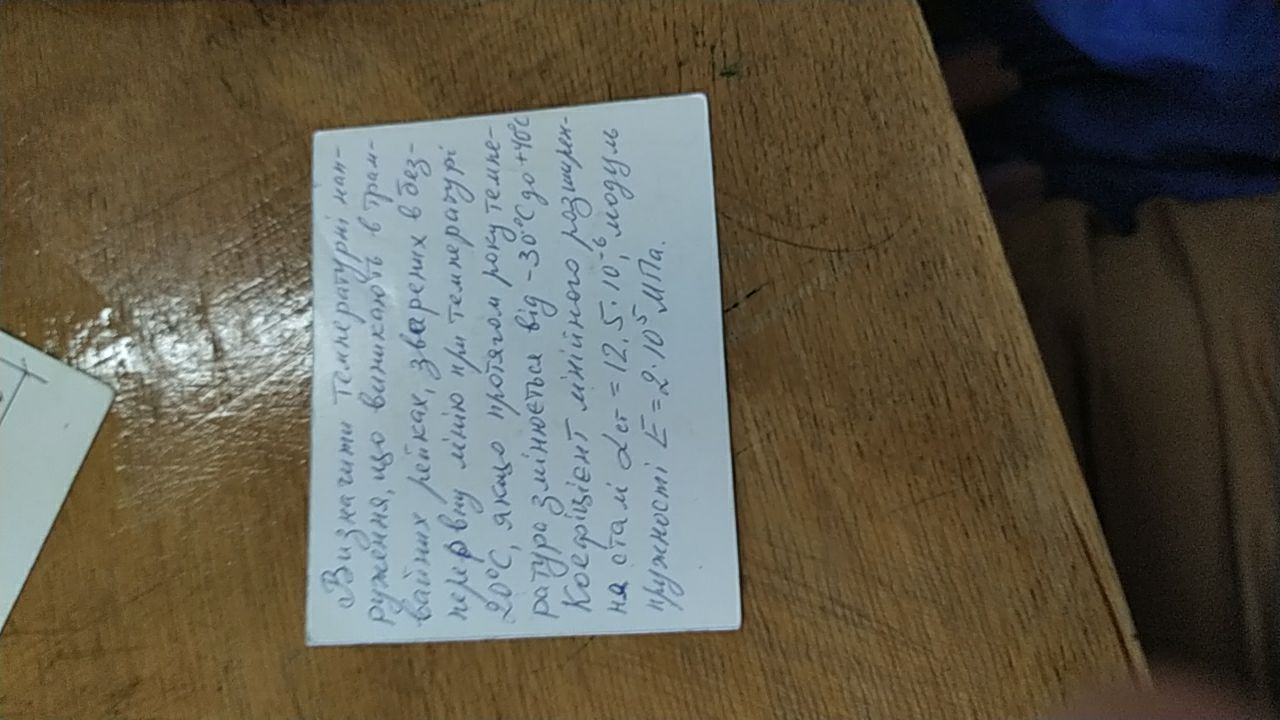 Визначити температурні нап-
руження, що виникають в трам-
вайних рейках, зварених в без-
перервну лінію при температурі
20°С, якщо протягом року темпе-
ратура змінюється від -30°С до +40°С
Коефіцієнт лінійного розширен-
ня сталі αст = 12,5·10⁻⁶, модуль
пружності E = 2·10⁵ МПа.